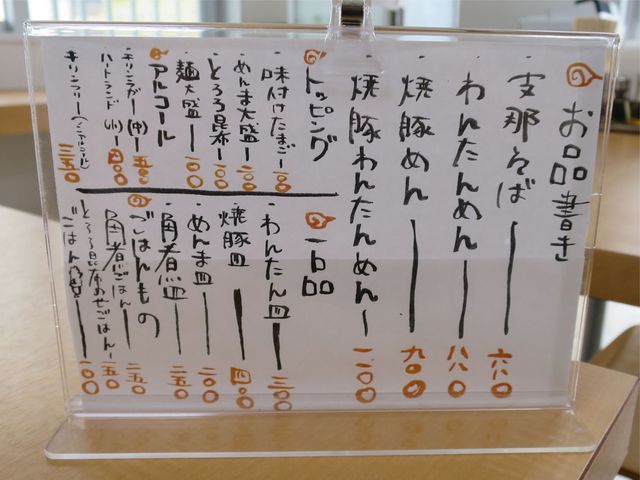 お品書き
支那そば 六八〇
わんたんめん 八八〇
焼豚めん 九〇〇
焼豚わんたんめん 一一〇〇
トッピング
味付けたまご 一〇〇
めんま大盛 一〇〇
とろろ昆布 一〇〇
麺大盛 一〇〇
アルコール
キリンラガー(中) 五〇〇
ハートランド(小) 四〇〇
キリンフリー(ノンアルコール) 三五〇
一品
わんたん皿 三〇〇
焼豚皿 四〇〇
めんま皿 二〇〇
角煮皿 二五〇
ごはんもの
角煮ごはん 二五〇
とろろ昆布めせごはん 一五〇
ごはん 一〇〇